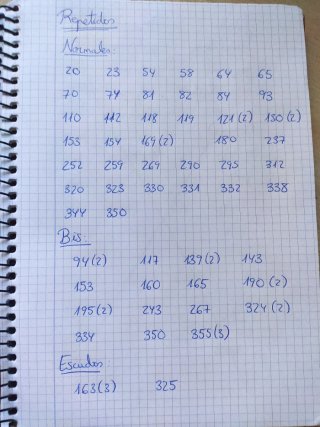 Repetidos
Normales:
20 23 54 58 64 65
70 74 81 82 84 93
110 112 118 119 121(2) 150(2)
153 154 169(2) 180 237
252 259 269 290 295 312
320 323 330 331 332 338
344 350
Bis:
94(2) 117 139(2) 143
153 160 165 190(2)
195(2) 243 267 324(2)
334 350 355(3)
Escudos:
163(3) 325